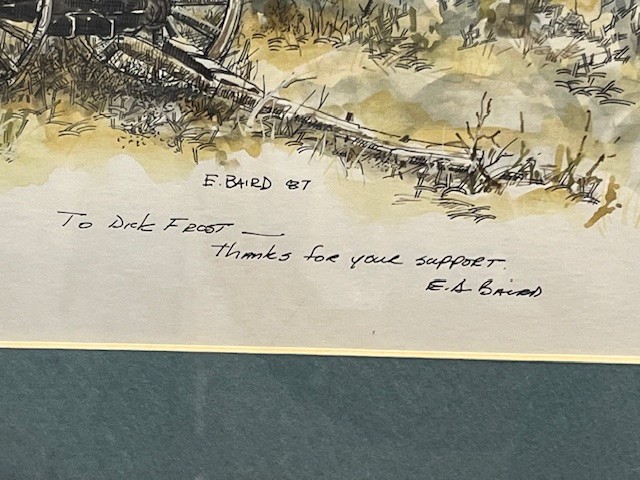 E. BAIRD 87
To Dick Frost —
Thanks for your support.
E.S. BAIRD